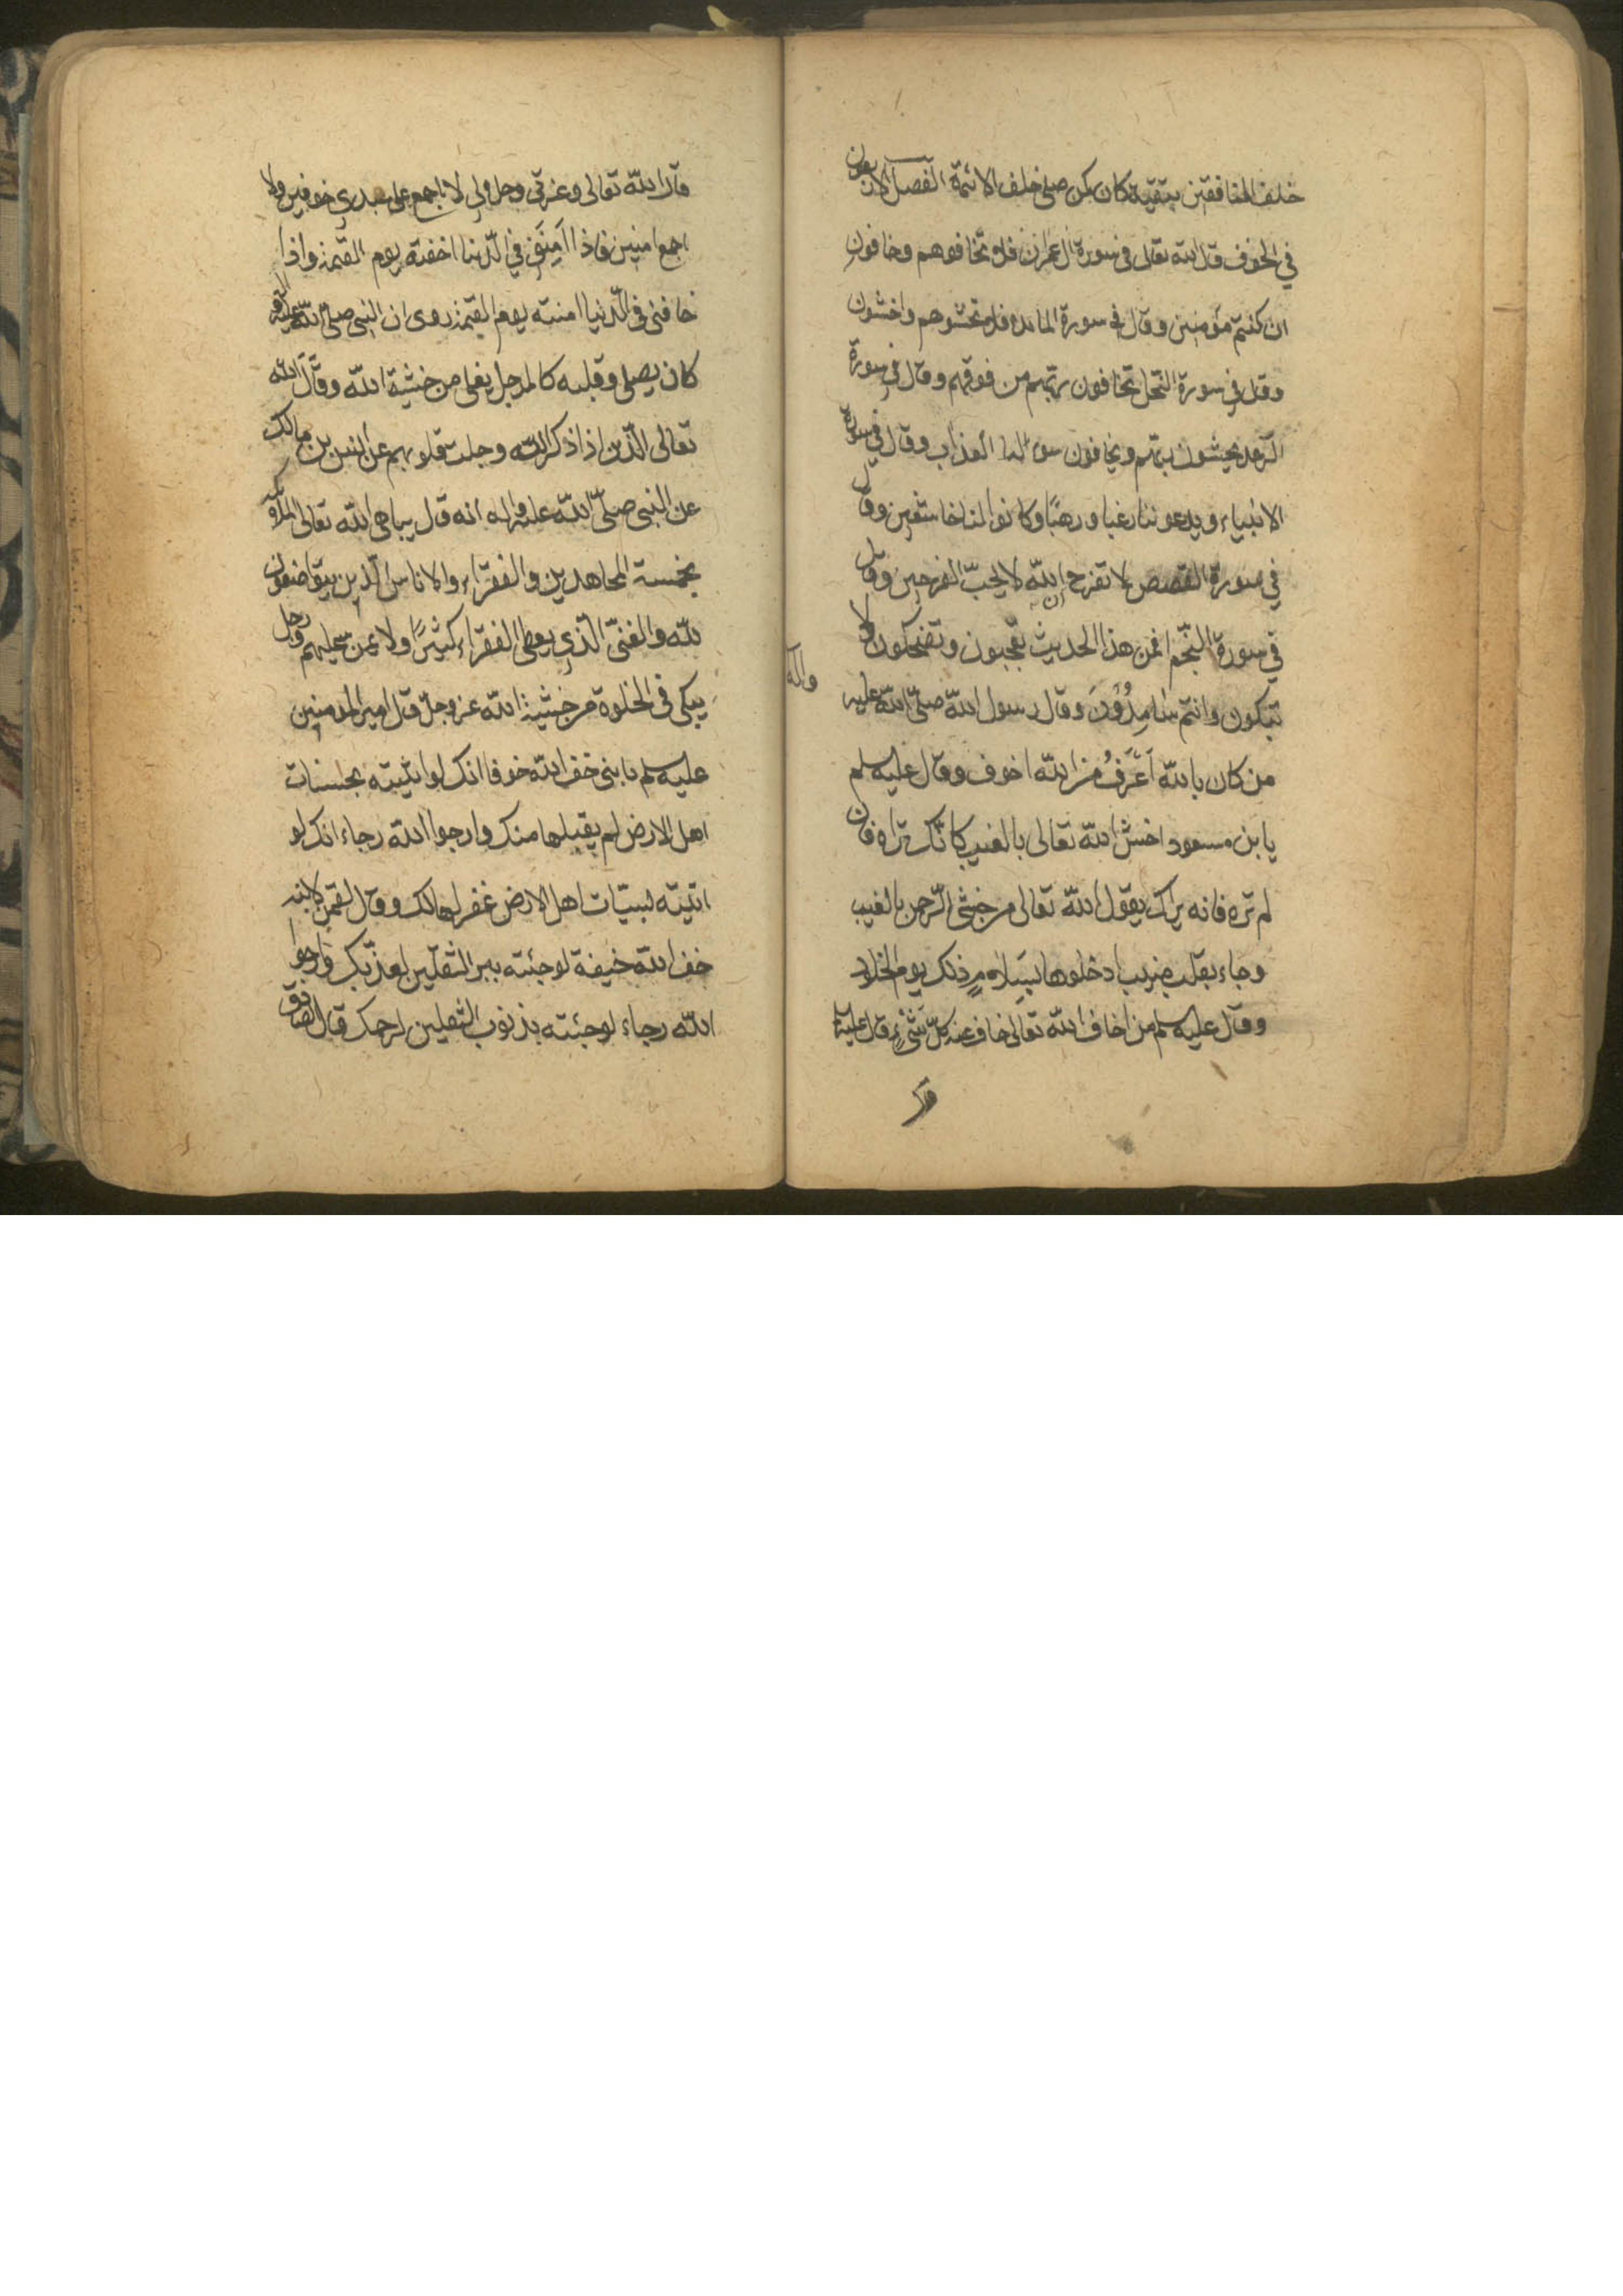 خلف المنافقين بتقية كان كمن صلى خلف الائمة الفصل الاربعون
في الخوف قال الله تعالى في سورة ال عمران فلا تخافوهم وخافون
ان كنتم مؤمنين وقال في سورة المائده فلا تخشوهم واخشون
وقال في سورة النحل يخافون ربهم من فوقهم وقال في سورة
الرعد يخشون ربهم ويخافون سوء العذاب وقال في سورة
الانبياء ويدعوننا رغبا ورهبا وكانوا لنا خاشعين وقال
في سورة القصص لا تفرح ان الله لا يحبّ الفرحين وقال
في سورة النّجم افمن هذا الحديث تعجبون وتضحكون ولا
تبكون وانتم سامِدُوْنَ وقال رسول الله صلّى الله عليه
واله
من كان بالله اَعْرَفُ من الله اخوف وقال عليه سلم
يا بن مسعود اخش الله تعالى بالغيب كانّك تراه فان
لم تره فانه يراك يقول الله تعالى من خشى الرّحمن بالغيب
وجاء بقلب منيب ادخلوها بسَلامٍ ذلك يوم الخلود
وقال عليه سلم من خاف الله تعالى خاف عنه كلّ شئ قال عليه سلم
قال
قال الله تعالى وعزتى وجلالى لا اجمع على عبدى خوفين ولا
اجمع امنين فاذا اَمِنَنِى في الدّنيا اخفته يوم القيمة واذا
خافنى في الدّنيا امنته يوم القيمة روى ان النبى صلى الله عليه واله
كان يصلى وقلبه كالمرجل يغلى من خشية الله وقال الله
تعالى الّذين اذا ذكر الله وجلت قلوبهم عن انس بن مالك
عن النبى صلّى الله عليه واله انه قال يباهى الله تعالى الملائكة
بخمسة المجاهدين والفقراء والاناس الّذين يتواضعون
لله والغنىّ الّذى يعطى الفقراء كثيرًا ولا يمن عليهم ورجل
يبكى في الخلوة من خشية الله عز وجلّ قال امير المومنين
عليه سلم يا بنى خف الله خوفا انك لو اتيته بحسنات
اهل الارض لم يقبلها منك وارجوا الله رجاء انك لو
اتيته بسيّات اهل الارض غفر لها لك وقال لقمن لابنه
خف الله خيفة لو جئته ببر الثقلين لعذّبك وارجوا
الله رجاء لو جئته بذنوب الثقلين لرحمك قال الصادق